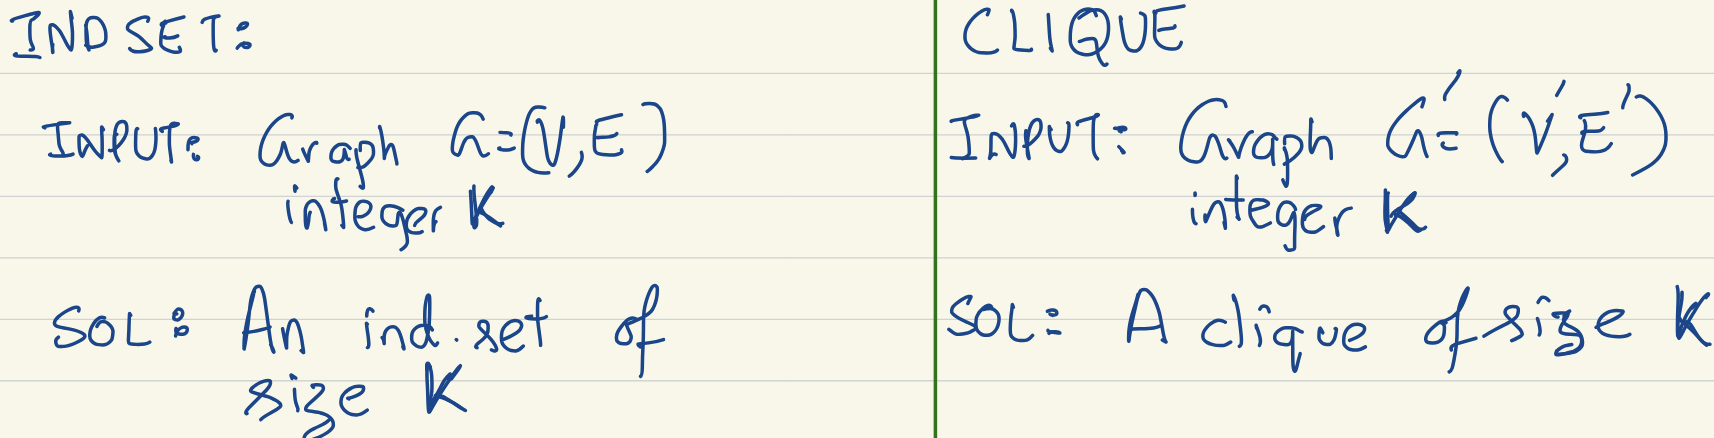 INDSET:
INPUT: Graph G=(V,E)
integer K
SOL: An ind.set of
size K
CLIQUE
INPUT: Graph G'=(V',E')
integer K
SOL: A clique of size K